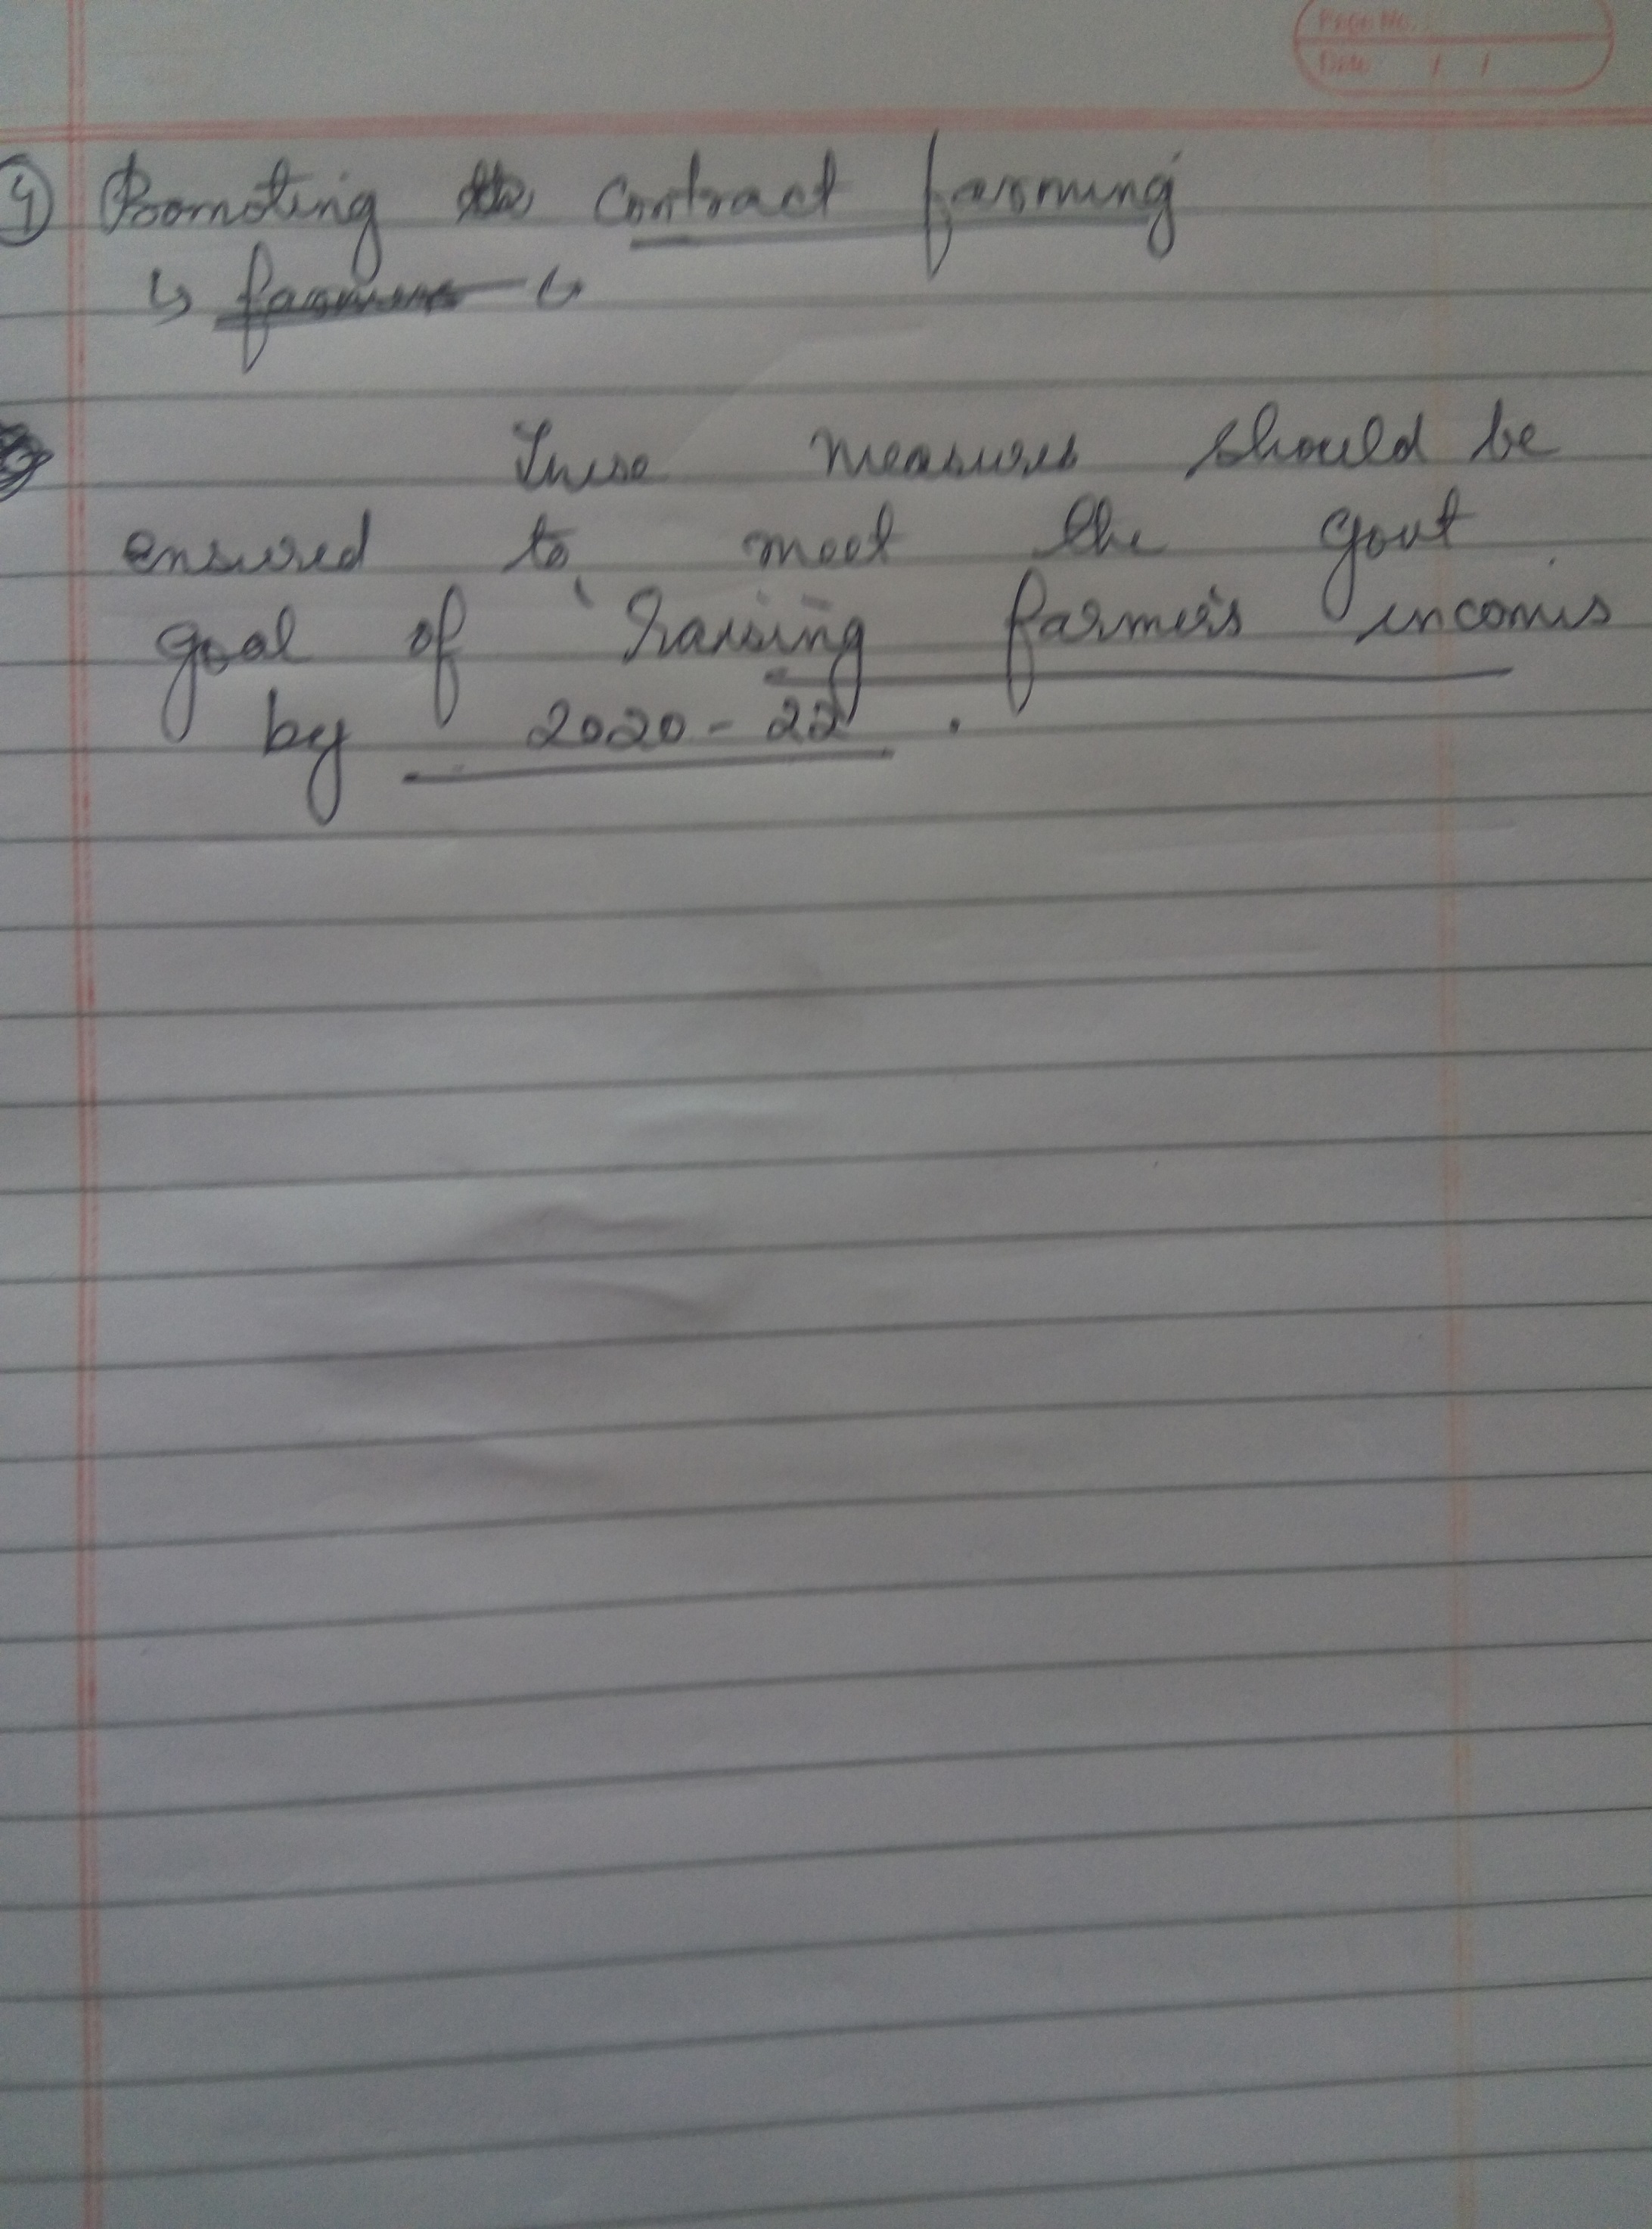 Page No.
Date / /
④ Promoting the contract farming
↳ farmers ↳
These measures should be
ensured to meet the govt
goal of raising farmer's incomes
by 2020-22.